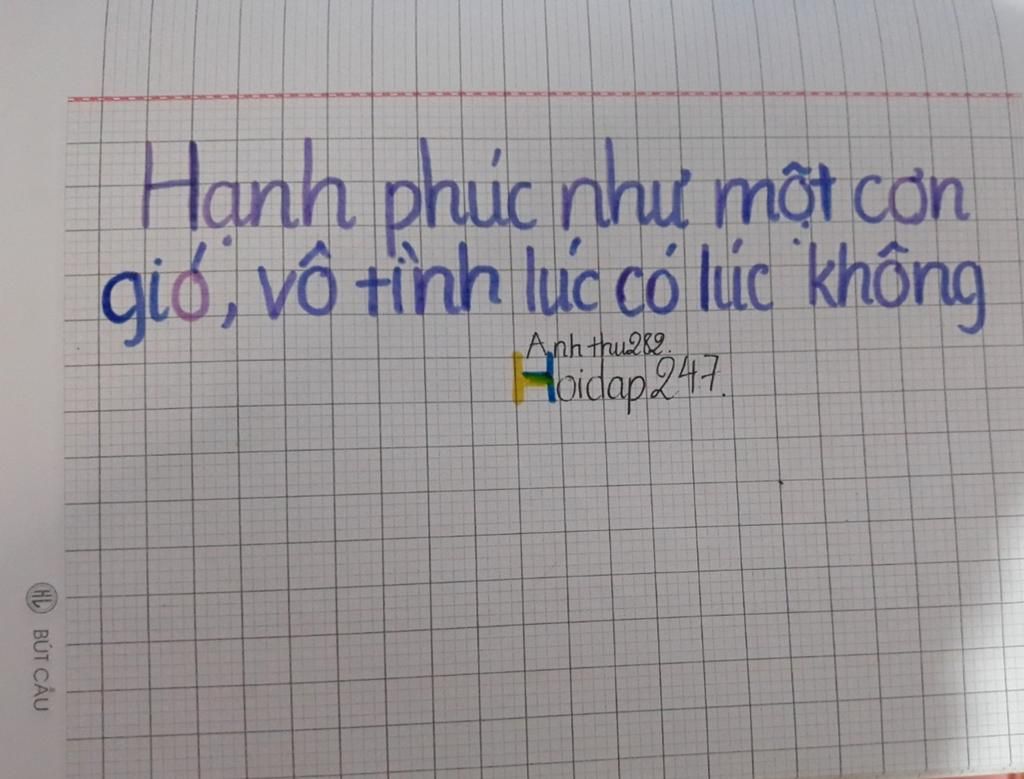 Hạnh phúc như một cơn
gió, vô tình lúc có lúc không
Anh thu282.
Hoidap247.
HL BÚT CẦU